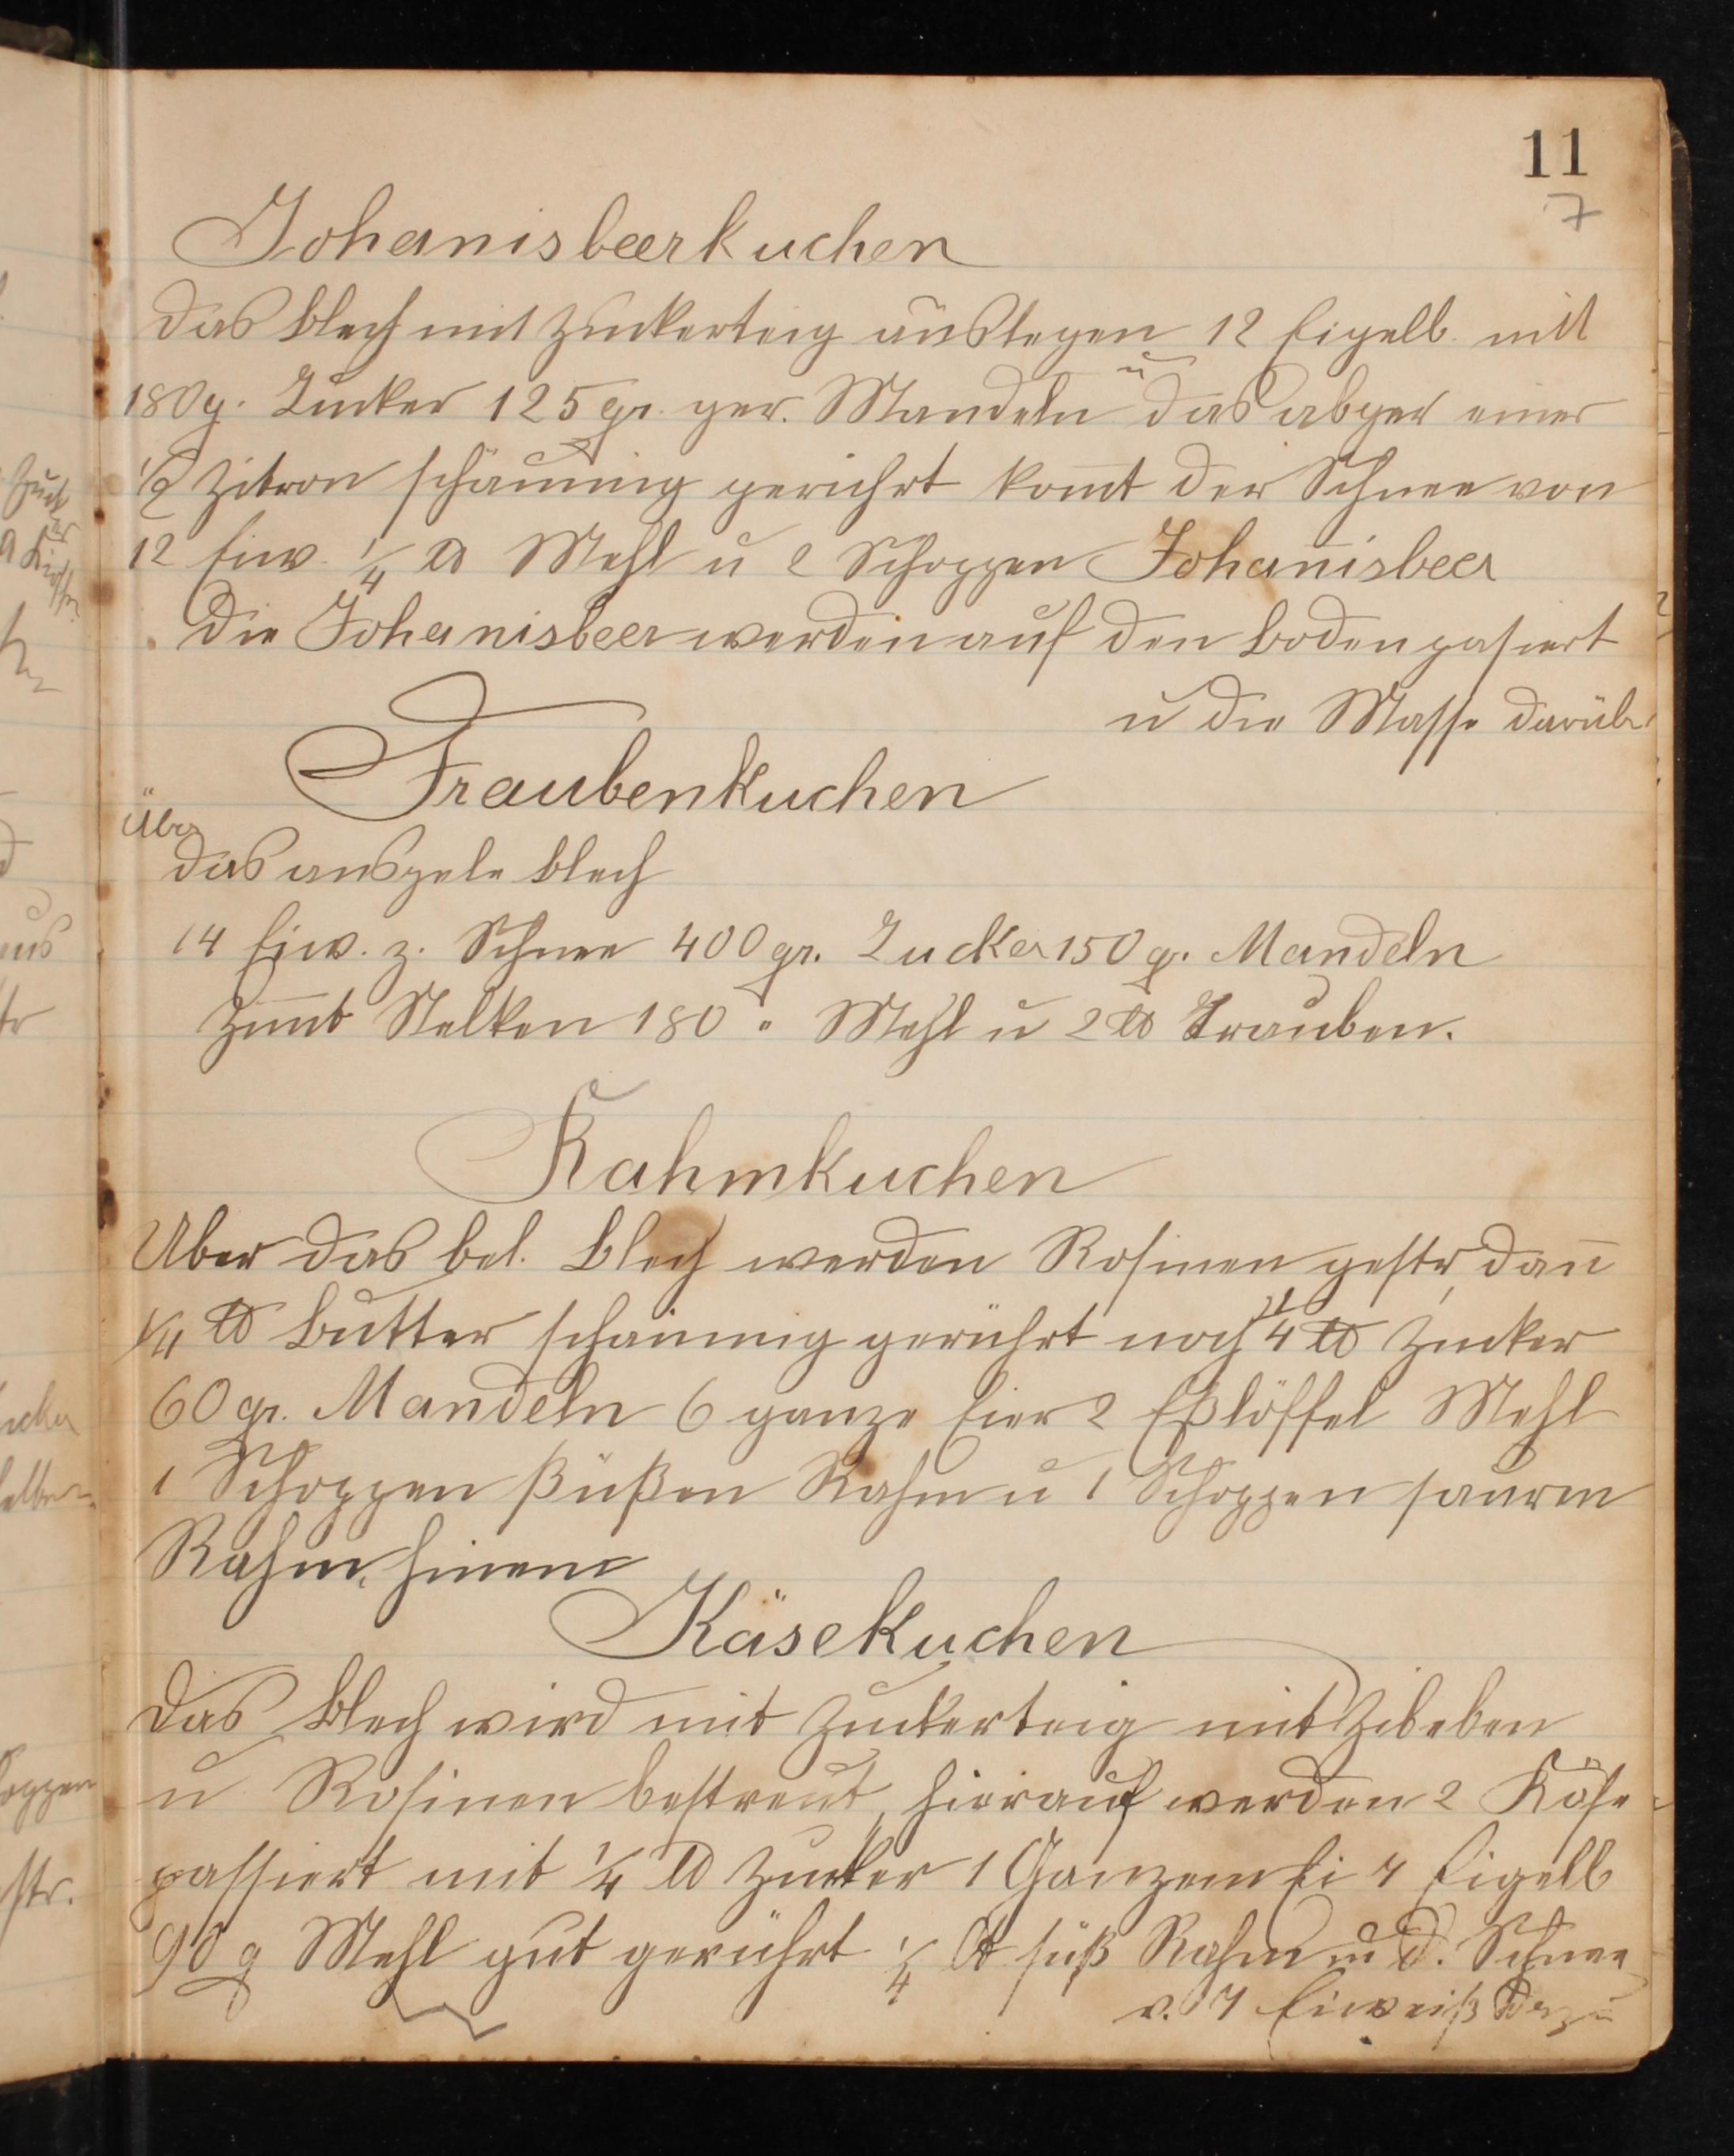 11
7
Johanisbeerkuchen
das Blech mit Zuckerteig auslegen 12 Eigelb mit
180 g. Zucker 125 gr. ger. Mandeln u das abger einer
1/2 Zitron schäumig gerührt kom̄t der Schnee von
12 Eiw. 1/4 ℔ Mehl u 2 Schoppen Johan̄isbeer
die Johanisbeer werden auf den Boden pasiert
u die Masse darüber
Traubenkuchen
Über
das ausgele Blech
14 Eiw. z. Schnee 400 gr. Zucker 150 g. Mandeln
Zim̄t Nelken 180 " Mehl u 2 ℔ Trauben.
Rahmkuchen
Uber das bel. Blech werden Rosinen gestr, dan̄
1/4 ℔ Butter schaumig gerührt noch 1/4 ℔ Zucker
60 gr. Mandeln 6 ganze Eier 2 Eßlöffel Mehl
1 Schoppen süßen Rahm u 1 Schoppen saurm
Rahm, hinein
Käsekuchen
Das Blech wird mit Zuckerteig mit Zibeben
u Rosinen bestreut, hierauf werden 2 Käse
passiert mit 1/4 ℔ Zucker 1 Ganzem Ei 7 Eigelb
90 g Mehl gut gerührt 1/4 lt süß Rahm u d. Schnee
v. 7 Eiweiß dazu